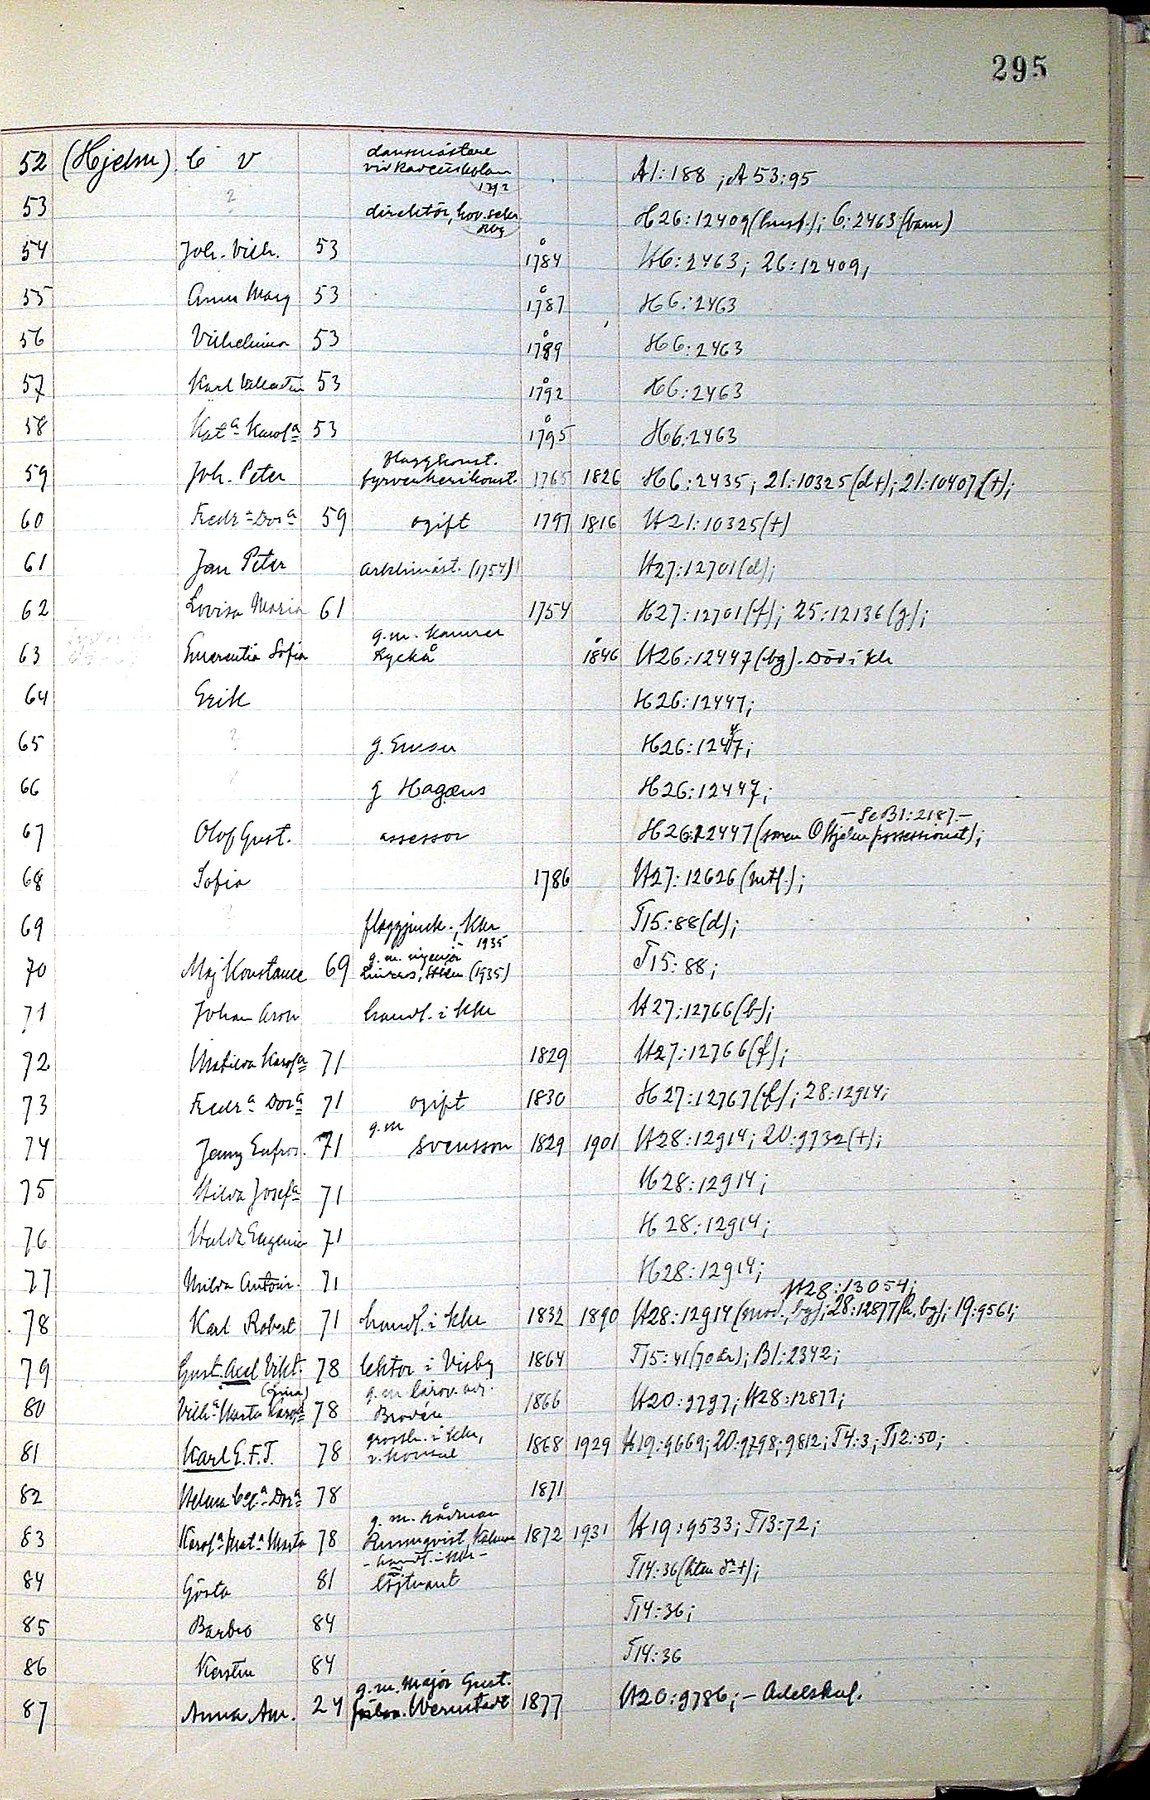 295
52 (Hjelm) C V dansmästare vid Kadettskolan 1792 A1:188; A53:95
53 ? direktör, hov.sekr. A26:12409 (hust.); 6:2463 (barn)
54 Joh. Vilh. 53 1784 H6:2463; 26:12409,
55 Anna Marg 53 1787 H6:2463
56 Vilhelmina 53 1789 H6:2463
57 Karl Valentin 53 1792 H6:2463
58 Kat:a Karol:a 53 1795 H6:2463
59 Joh. Peter flaggkonst. fyrverkerikonst. 1765 1826 H6:2435; 21:10325 (d+); 21:10407 (+);
60 Fredr:a Dor:a 59 ogift 1797 1816 H21:10325 (+)
61 Jan Peter arklimäst. (1754) H27:12701 (d);
62 Lovisa Maria 61 1754 H27:12701 (f); 25:12136 (g);
63 Emerentia Sofia g.m. kamrer Ryckå 1846 H26:12447 (bg). Död i Kkr
64 Erik H26:12447;
65 ? g. Enser H26:12447;
66 g Hagæus H26:12447;
67 Olof Gust. assessor H26:12447 (sonen O Hjelm possessionat); – Se B1:2187 –
68 Sofia 1786 H27:12626 (mtf.);
69 flaggjunk., Kkr 1935 T15:88 (d);
70 Maj Konstance 69 g.m. ingenjör Linres, Sthlm (1935) T15:88;
71 Johan Aron handl. i Kkr H27:12766 (b);
72 Matilda Karol:a 71 1829 H27:12766 (f);
73 Fredr:a Dor:a 71 ogift 1830 H27:12767 (f); 28:12914;
74 Jenny Eufros. 71 g.m Svensson 1829 1901 H28:12914; 20:9732 (+);
75 Hilda Josef:a 71 H28:12914;
76 Huld:a Eugenia 71 H28:12914;
77 Milda Anton. 71 H28:12914;
78 Karl Robert 71 handl. i Kkr 1832 1890 H28:12914 (mod., bg); 28:12877 (h. bg); 19:9561; H28:13054;
79 Gust. Axel Vikt. 78 lektor i Visby 1864 T15:41 (70 år); B1:2342;
80 Vilh:a Marta Karol:a 78 g.m lärov. adj. Brodén 1866 H20:9797; H28:12877;
81 Karl E.F.T. 78 grossh. i Kkr, v. konsul 1868 1929 H19:9669; 20:9798; 9812; T4:3; T12:50;
82 Helena Dor:a 78 1871
83 Karol:a Mat:a Marta 78 g.m. rådman Rumqvist, Kalmar 1872 1931 H19:9533; T13:72;
84 Gösta 81 – handl. i Kkr – löjtnant T14:36;
85 Barbro 84 T14:36;
86 Kerstin 84 T14:36
87 Anna Am. 24 g.m. Major Gust. Wernstedt 1877 H20:9786; – Adelskal.